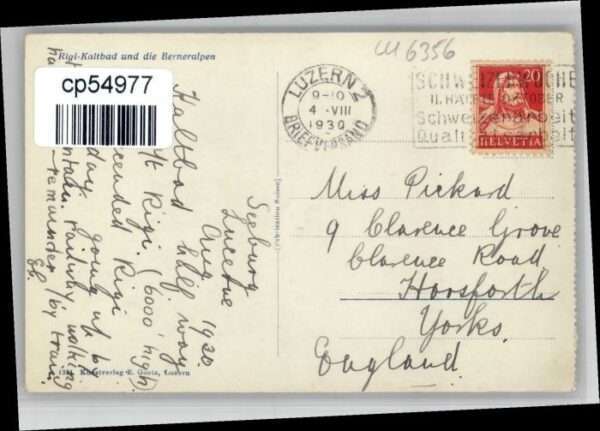 Rigi-Kaltbad und die Berneralpen
cp54977
CU 6356
LUZERN 2
9-10
4 VIII
1930
BRIEFVERSAND
SCHWEIZERWOCHE
OKTOBER
Schweizerarbeit
Qualitätsarbeit
20
HELVETIA
Seeburg
Lucerne
Aug 1930
Kaltbad half way
Rigi. (6000' high).
Rigi
day. going up by
railway & walking
remainder by train
Miss Pickard
9 Clarence Grove
Clarence Road
Horsforth
Yorks.
England
Kunstverlag E. Goetz, Luzern